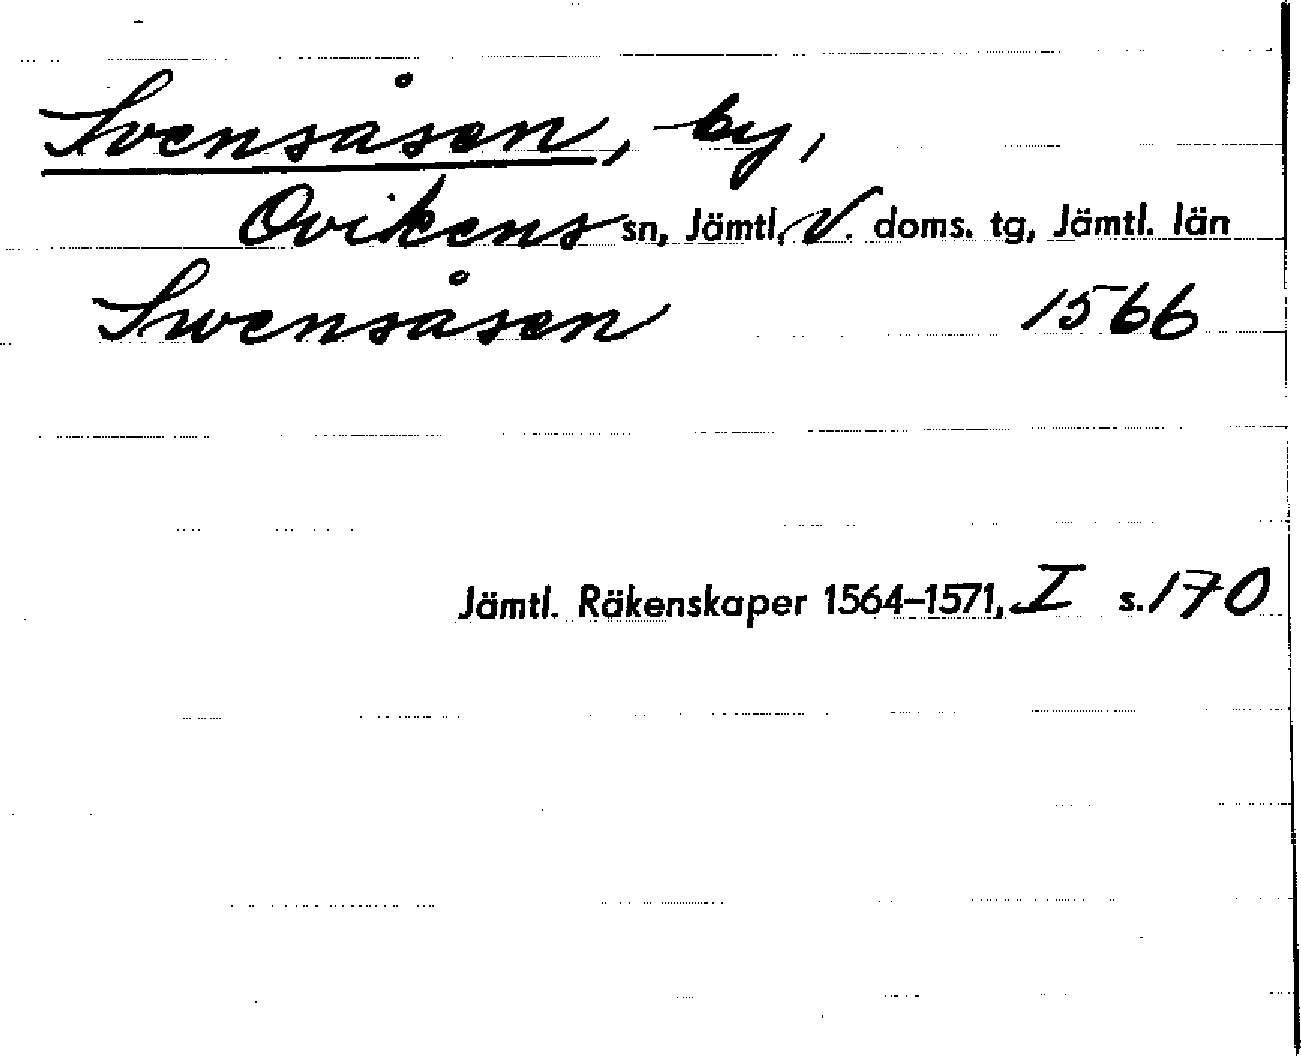 Svensåsen, by,
Ovikens sn, Jämtl. V. doms. tg, Jämtl. län
Swensåsen 1566
Jämtl. Räkenskaper 1564–1571, I s. 170